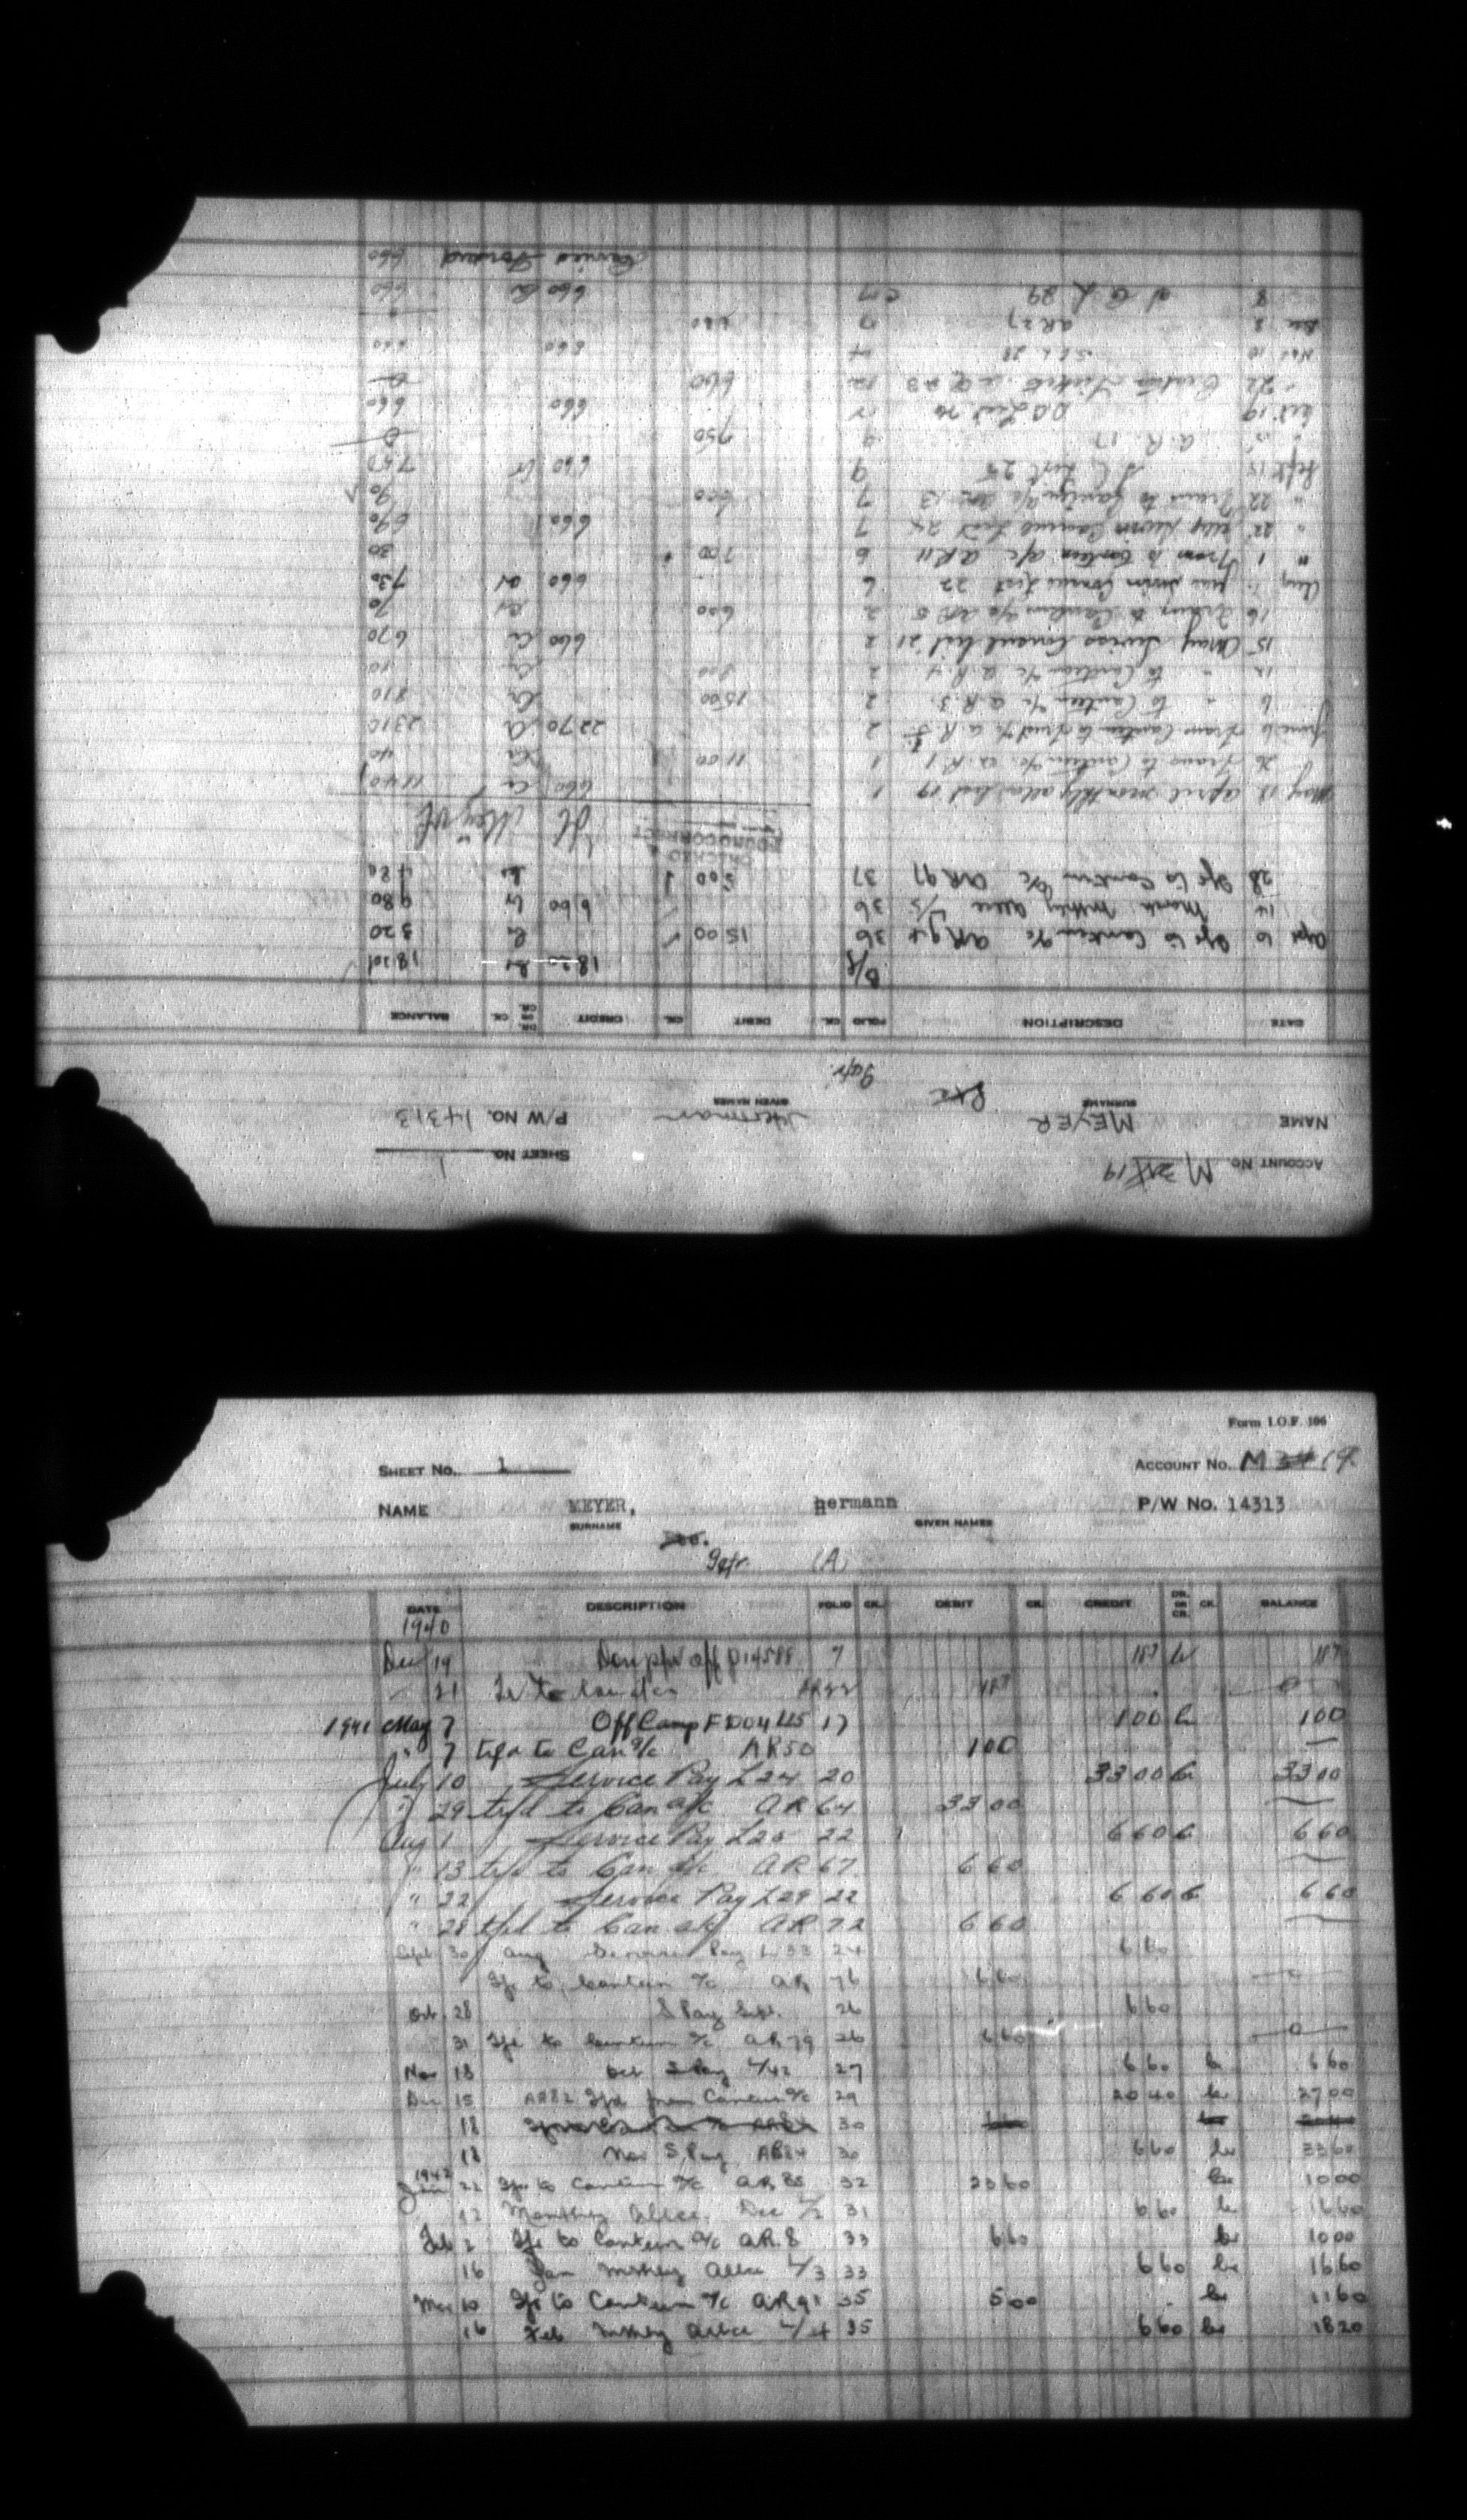 ACCOUNT NO. M 19
SHEET NO. 1
NAME MEYER Herman P/W NO. 14313
SURNAME GIVEN NAMES
Gefr.
DATE DESCRIPTION FOLIO CK. DEBIT CK. CREDIT DR. OR CR. CK. BALANCE
B/F 18 20 Cr 18 20
Apr 10 Tfr to Canteen a/c AR 36 15 00 Cr 3 20
14 March Mthly Allce L/5 36 6 60 Cr 9 80
28 Tfr to Canteen a/c AR 97 37 5 00 Cr 4 80
CHECKED &
FOUND CORRECT
H Meyer
May 12 April monthly allow list 19 1 6 60 Cr 11 40
26 Trans to Canteen a/c A.R. 1 1 11 00 Cr 40
June 6 Trans Canteen to a/c A.R. 2 22 70 Cr 23 10
6 " to Canteen a/c A.R. 3 2 15 00 Cr 8 10
12 " to Canteen a/c A.R. 4 2 8 00 Cr 10
15 May Swiss Consul list 21 2 6 60 Cr 6 70
16 Trans to Canteen a/c AR 5 2 6 00 Cr 70
Aug 1 June Swiss Consul list 22 6 6 60 Cr 7 30
" 1 Trans to Canteen a/c AR 11 6 7 00 30
" 22 July Swiss Consul list 24 7 6 60 6 90
" 22 Trans to Canteen a/c AR 13 7 6 00 90
Sept 15 S C List 25 9 6 60 Cr 7 50
" 15 A.R. 17 9 7 50 0
Oct 19 List 12 6 60 6 60
" 22 Canteen Tickets 12 6 60 0
Nov 10 S C L 28 6 60 6 60
Dec 3 AR 27 6 60
8 S C L 29 6 60 Cr 6 60
Carried Forward 6 60
Form I.O.F. 106
SHEET NO. 1 ACCOUNT NO. M 34 19
NAME MEYER, hermann P/W NO. 14313
SURNAME GIVEN NAMES
Gefr. (A)
DATE DESCRIPTION FOLIO CK. DEBIT CK. CREDIT DR. OR CR. CK. BALANCE
1940
Dec 19 7 187 Cr 187
21 Tfr to AR22 187 0
1941 May 7 Off Camp F 17 1 00 Cr 1 00
" 7 tfr to Can a/c AR50 1 00 —
July 10 Service Pay L24 20 33 00 Cr 33 00
" 29 tfd to Can a/c AR 64 33 00 —
Aug 1 Service Pay L25 22 6 60 Cr 6 60
" 13 tfd to Can a/c AR 67 6 60 —
" 22 Service Pay L29 22 6 60 Cr 6 60
" 28 tfd to Can a/c AR 72 6 60 —
Sept 30 Aug Service Pay L33 24 6 60
Tfr to Canteen a/c AR 76 6 60 0
Oct 28 S Pay Sept. 26 6 60
31 Tfr to Canteen a/c AR 79 26 6 60 0
Nov 18 Oct S Pay L/42 27 6 60 Cr 6 60
Dec 15 AR82 Tfd from Canteen a/c 29 20 40 Cr 27 00
18 30
18 Nov S Pay AR84 30 6 60 Cr 33 60
1942
Jan 22 Tfr to Canteen a/c AR 85 32 23 60 Cr 10 00
12 Monthly Allce. Dec L/2 31 6 60 Cr 16 60
Feb 2 Tfr to Canteen a/c AR. 8 33 6 60 Cr 10 00
16 Jan Mthly Allce L/3 33 6 60 Cr 16 60
Mar 10 Tfr to Canteen a/c AR 91 35 5 00 Cr 11 60
16 Feb Mthly Allce L/4 35 6 60 Cr 18 20